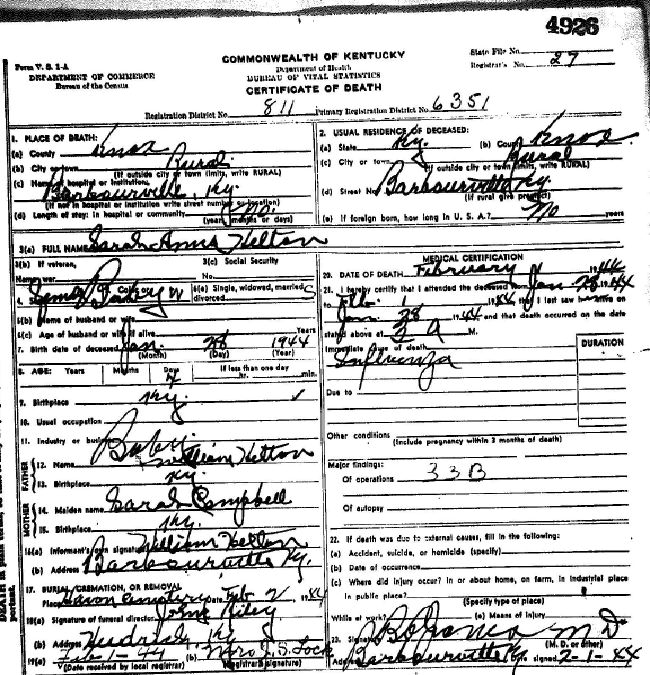 4926
Form V. S. 1-A
DEPARTMENT OF COMMERCE
Bureau of the Census
COMMONWEALTH OF KENTUCKY
Department of Health
BUREAU OF VITAL STATISTICS
CERTIFICATE OF DEATH
State File No.
Registrar's No. 27
Registration District No. 811 Primary Registration District No. 6351
1. PLACE OF DEATH:
(a) County Knox
(b) City or town Rural
(If outside city or town limits, write RURAL)
(c) Name of hospital or institution:
Barbourville, Ky.
(If not in hospital or institution write street number or location)
(d) Length of stay: In hospital or community
(years, months or days)
2. USUAL RESIDENCE OF DECEASED:
(a) State Ky. (b) County Knox
(c) City or town Rural
(If outside city or town limits, write RURAL)
(d) Street No. Barbourville Ky.
(If rural give precinct)
(e) If foreign born, how long in U. S. A.? No years
3(a) FULL NAME Sarah Anna Helton
3(b) If veteran,
Name war
3(c) Social Security
No.
4. Sex
6(a) Single, widowed, married,
divorced S
6(b) Name of husband or wife
6(c) Age of husband or wife if alive Years
7. Birth date of deceased Jan. 28 1944
(Month) (Day) (Year)
8. AGE: Years Months Days If less than one day
hr. min.
9. Birthplace Ky.
10. Usual occupation
11. Industry or business Baby
FATHER
12. Name William Helton
13. Birthplace Ky.
MOTHER
14. Maiden name Sarah Campbell
15. Birthplace Ky.
16(a) Informant's own signature William Helton
(b) Address Barbourville Ky.
17. BURIAL, CREMATION, OR REMOVAL
Place Cemetery Date Feb 2, 1944
18(a) Signature of funeral director John Riley
(b) Address Ky
19(a) Feb 1-44 (b) Mrs J. S. Lock
(Date received by local registrar) (Registrar's signature)
MEDICAL CERTIFICATION
20. DATE OF DEATH February 1944
21. I hereby certify that I attended the deceased from Jan 28 1944
to Feb. 1 1944, that I last saw alive on
Jan. 28 1944 and that death occurred on the date
stated above at 3 A M.
Immediate cause of death
Influenza
DURATION
Due to
Other conditions
(Include pregnancy within 3 months of death)
Major findings:
Of operations 33B
Of autopsy
22. If death was due to external causes, fill in the following:
(a) Accident, suicide, or homicide (specify)
(b) Date of occurrence
(c) Where did injury occur? In or about home, on farm, in industrial place
in public place?
(Specify type of place)
While at work? (e) Means of injury
23. Signature M D
(M. D. or other)
Address Barbourville Ky signed 2-1-44